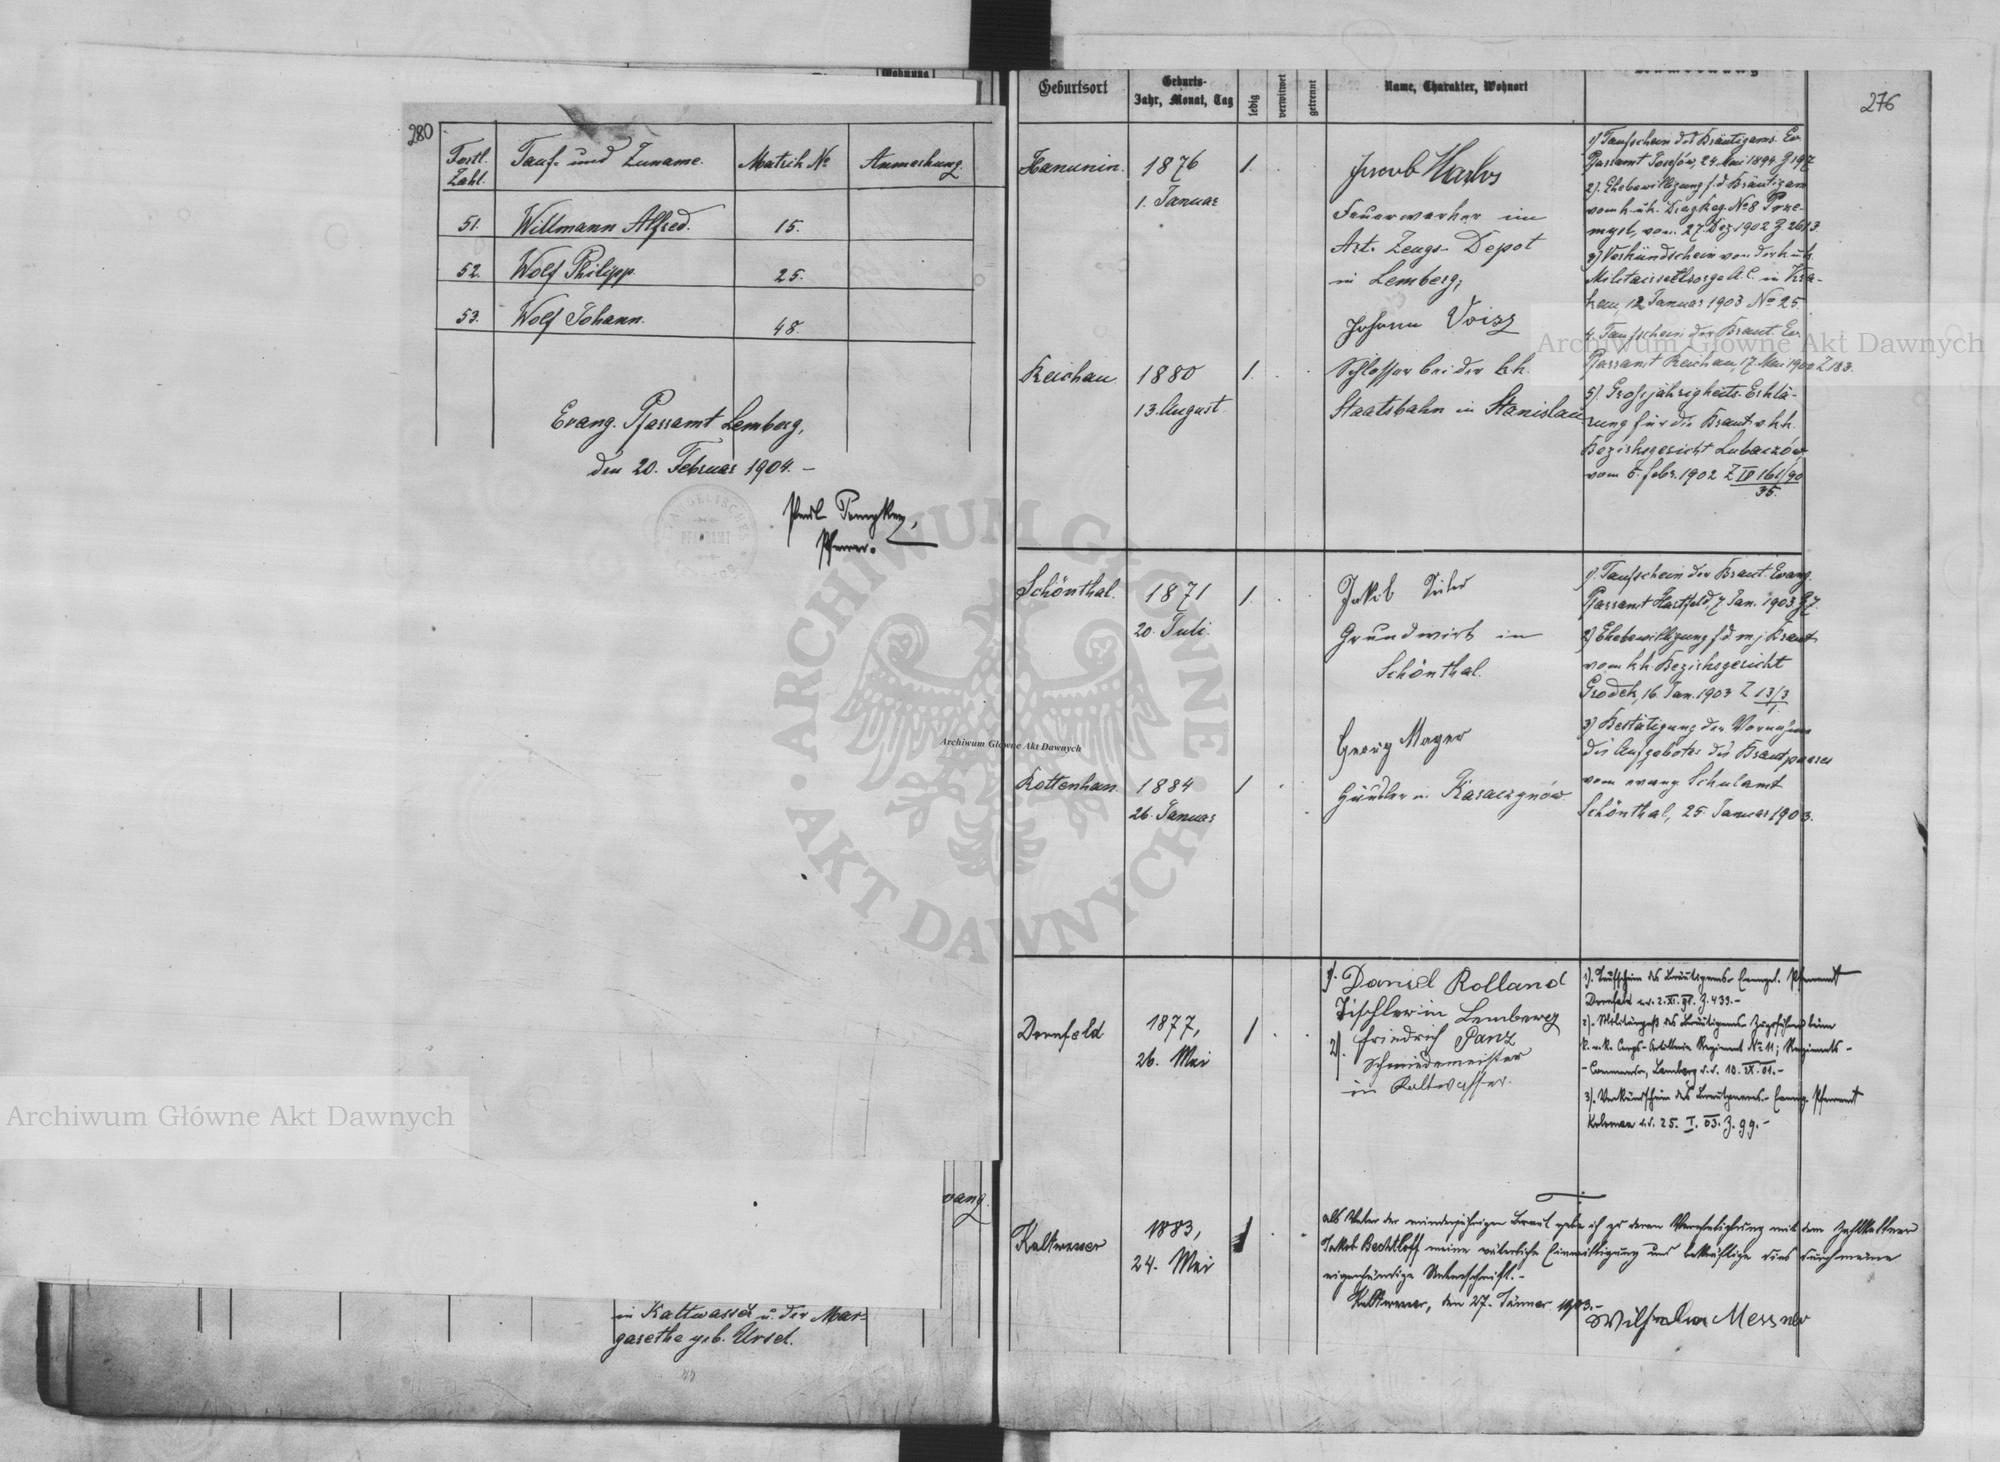 Wohnung
280
Fortl. Zahl.
Tauf- und Zuname.
Matrik No
Anmerkung.
51. Willmann Alfred. 15.
52. Wolf Philipp. 25.
53. Wolf Johann. 48.
Evang. Pfarramt Lemberg,
den 20. Februar 1904. –
Pfarrer.
EVANGELISCHES
PFARRAMT
vang.
in Kaltwasser u. der Mar-
garethe geb. Ursel.
276
Geburtsort
Geburts-
Jahr, Monat, Tag
ledig
verwitwet
getrennt
Name, Charakter, Wohnort
Hanunin. 1876 1.
1. Januar
Jacob
Feuerwerker im
Art. Zeugs-Depot
in Lemberg;
Johann
Reichau. 1880 1.
13. August.
Schlosser bei der k.k.
Staatsbahn in Stanislau
1) Taufschein des Bräutigams. Ev.
Pfarramt Josefów, 24. Mai 1894. Z 197
2). Ehebewilligung f. d. Bräutigam
vom k. u. k. No 8 Prze-
mysl, vom 27 Dez 1902 Z 2613
3) Verkündschein von der k. u. k.
Militärseelsorge A. C. in Kra-
kau, 12 Januar 1903 No 25
4. Taufschein der Braut. Ev.
Pfarramt Reichau, 17. Mai 1900 Z 183.
5). Grossjährigkeits-Erklä-
rung für die Braut v. k. k.
Bezirksgericht Lubaczów
vom 5. Febr. 1902 Z IV 161/90
35.
Schönthal. 1871 1.
20. Juli.
Jakob
Grundwirt in
Schönthal.
Georg Mayer
Rottenhan. 1884 1
26. Januar
Häusler in
1). Taufschein der Braut. Evang.
Pfarramt Hartfeld, 7 Jan. 1903 Z 7.
2) Ehebewilligung f. d. mj. Braut
vom k k. Bezirksgericht
Grodek, 16. Jan. 1903 Z 13/3
1.
3) Bestätigung der Vornahme
des Aufgebotes des Brautpaares
vom evang. Schulamt
Schönthal, 25. Januar 1903.
Dornfeld 1877, 1
26. Mai
1). Daniel Rolland
Tischler in Lemberg
2). Friedrich Ganz
Schmiedemeister
in Kaltwasser.
1). Taufschein des Bräutigams. Evangel. Pfarramt
Dornfeld d.d. 2. XI. 91. Z. 433.–
2). Militärpass des Bräutigams. Zugsführer beim
k. u. k. Corps-Artillerie Regiment No 11; Regiments-
-Commando, Lemberg d.d. 10. IX. 01.–
3). Verkündschein des Bräutigams. Evang. Pfarramt
Kolomea d.d. 25. I. 03. Z. 99.–
Kaltwasser 1883, 1
24. Mai
Als Vater der minderjährigen Braut gebe ich zu deren Verehelichung mit dem Zahlkellner
Jakob Bechtloff meine väterliche Einwilligung und bekräftige dies durch meine
eigenhändige Unterschrift.–
Kaltwasser, den 27. Jänner 1903.–
Wilhelm Messner
Archiwum Główne Akt Dawnych
Archiwum Główne Akt Dawnych
Archiwum Główne Akt Dawnych
ARCHIWUM GŁÓWNE AKT DAWNYCH